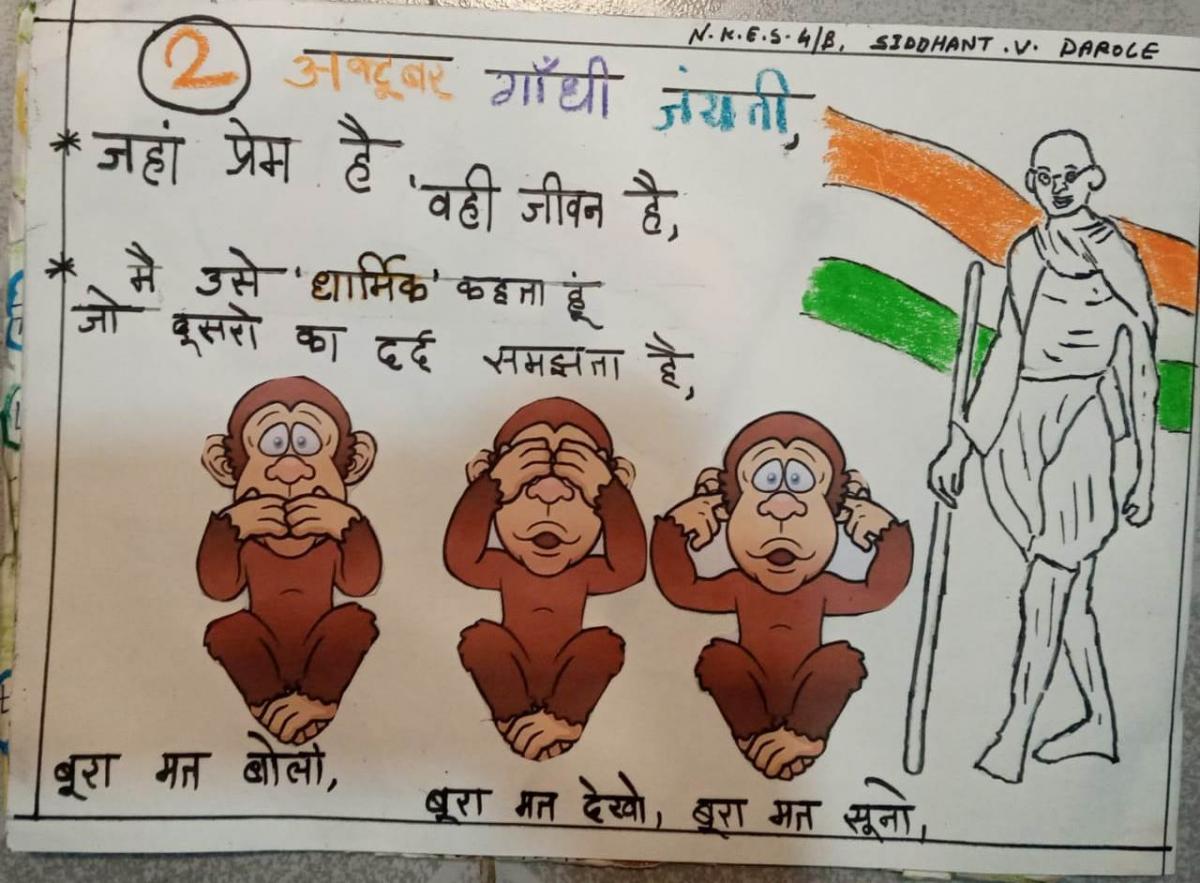 N.K.E.S-4/B, SIDDHANT.V. DAROLE
2 अक्टूबर गाँधी जंयती,
* जहां प्रेम है 'वही जीवन है,
* मै उसे 'धार्मिक' कहता हूं
जो दूसरो का दर्द समझता है,
बूरा मत बोलो,
बूरा मत देखो, बूरा मत सूनो,